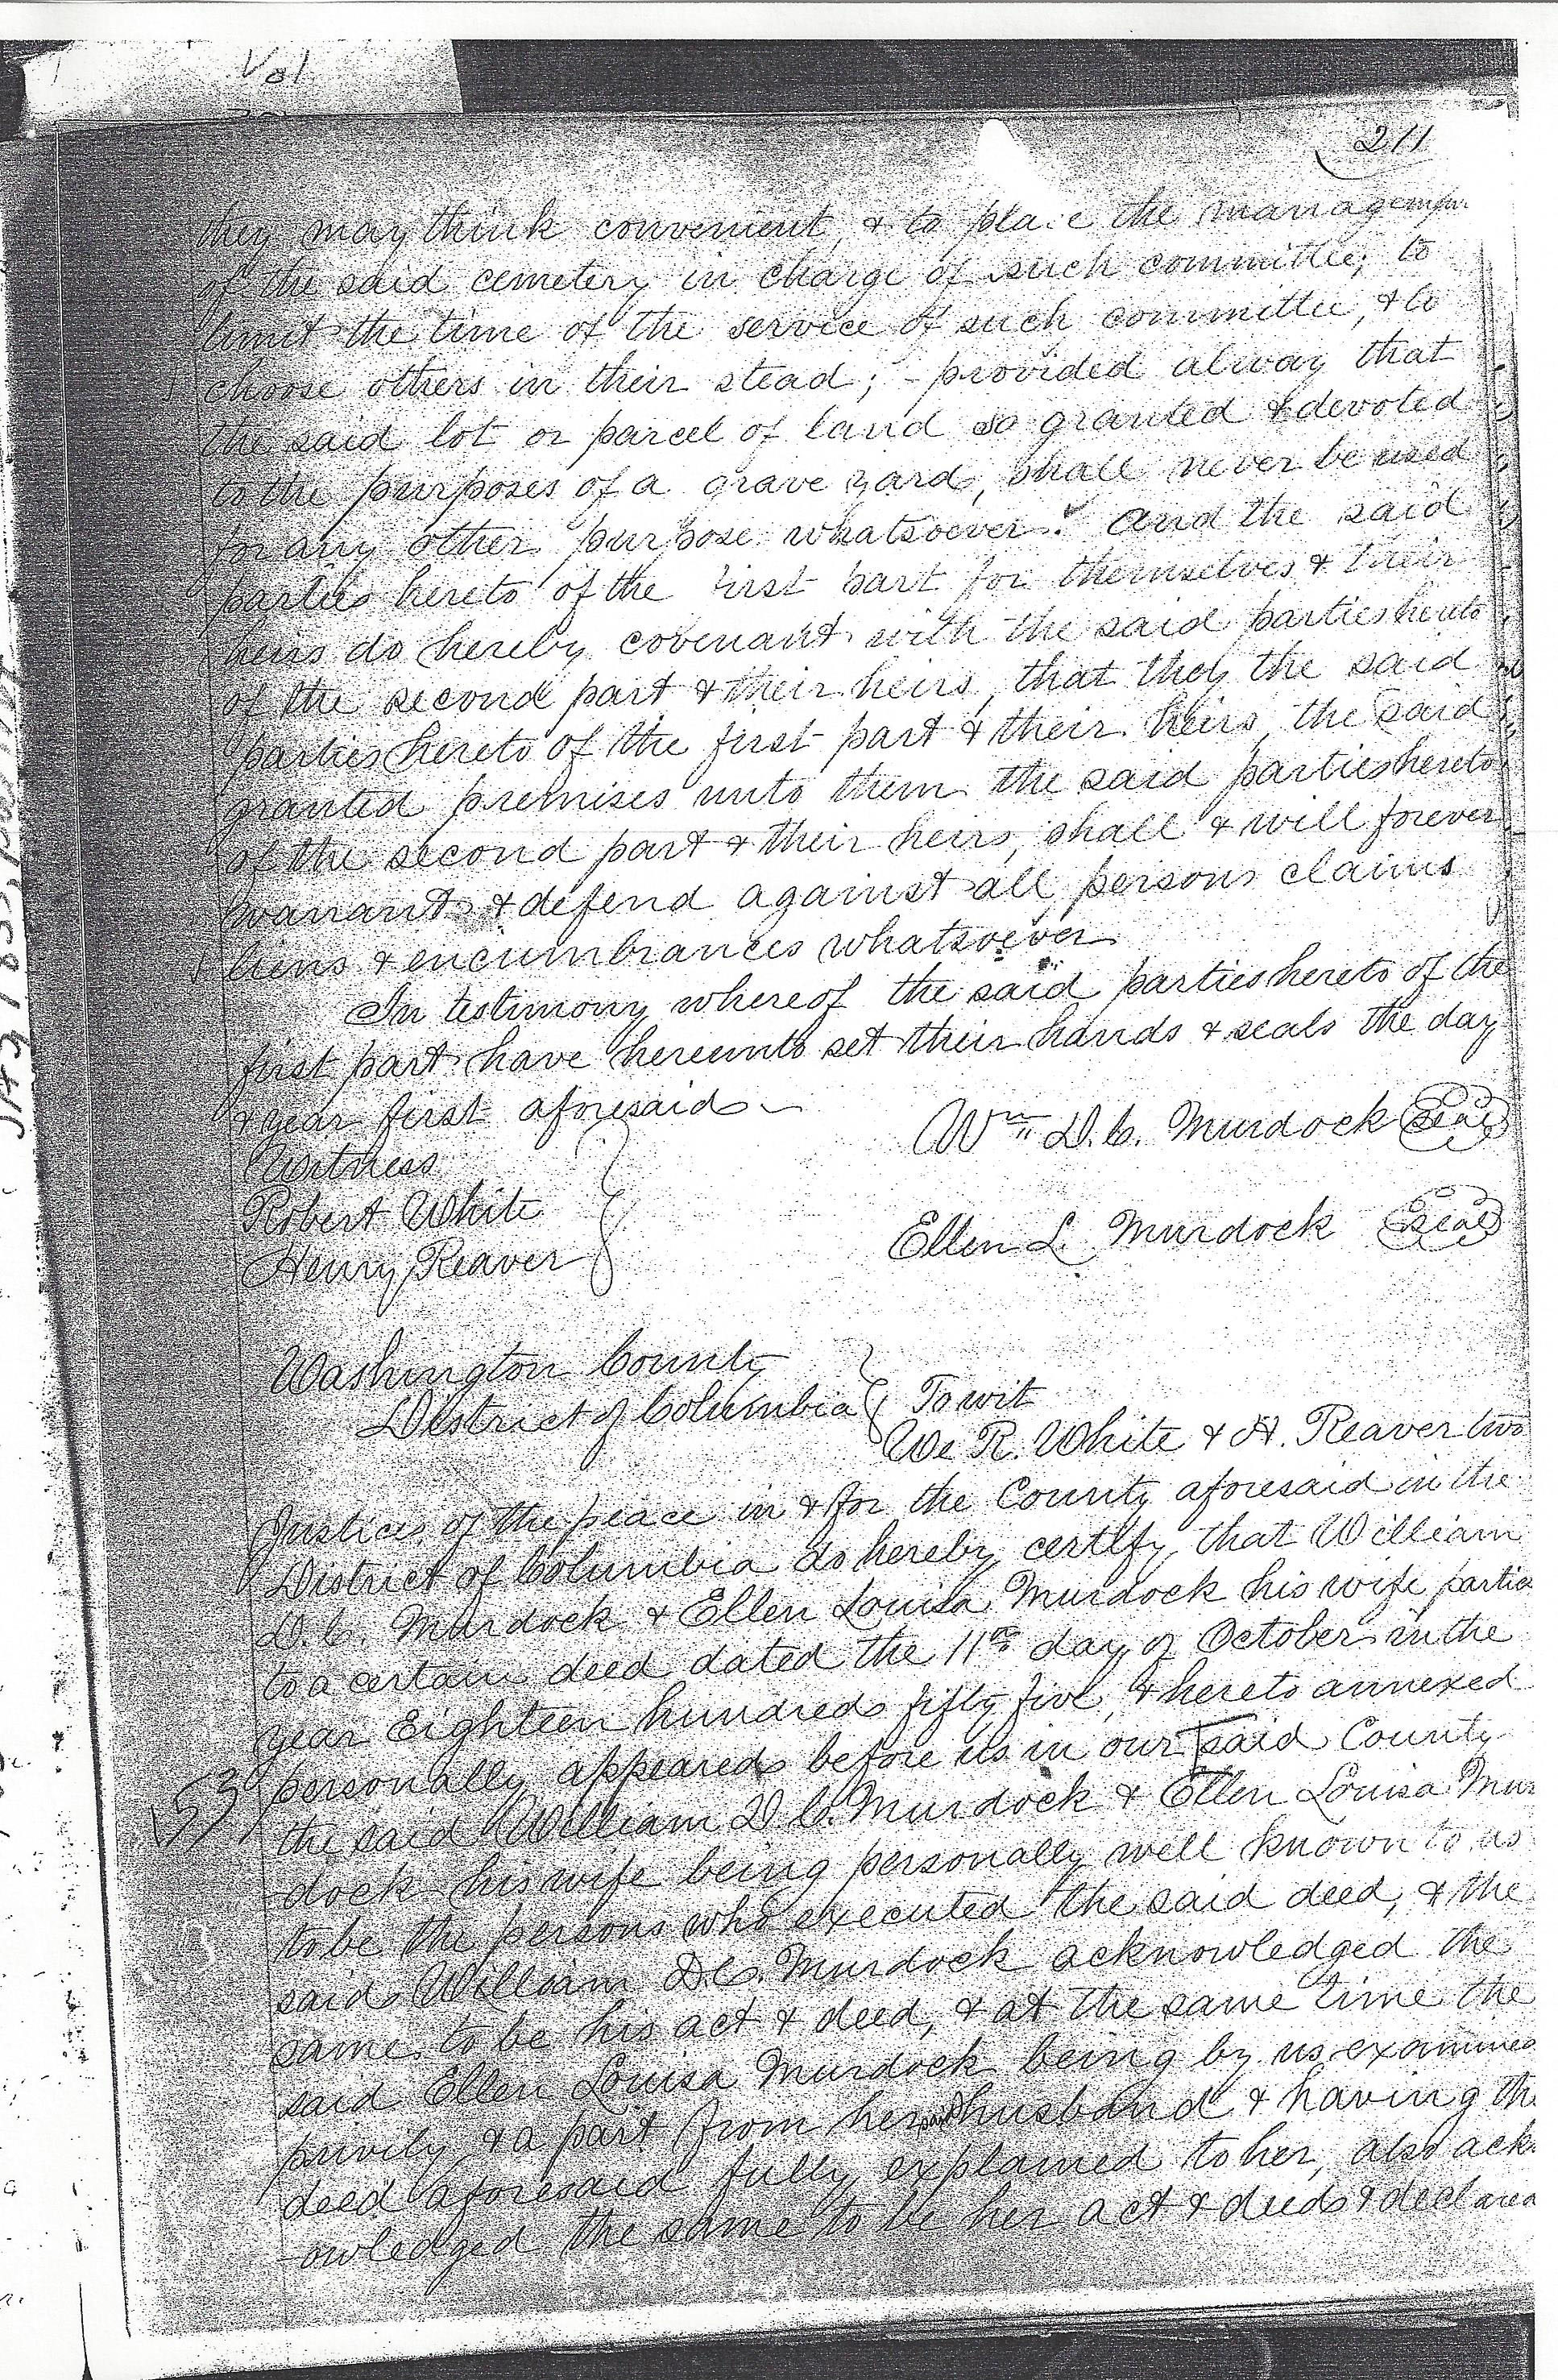 Vol
211
they may think convenient, & to place the managem
of the said cemetery in charge of such committee; to
limit the time of the service of such committee, & to
choose others in their stead; - provided alway that
the said lot or parcel of land so granted & devoted
to the purposes of a grave yard, shall never be used
for any other purpose whatsoever. And the said
parties hereto of the first part for themselves & their
heirs do hereby covenant with the said parties hereto
of the second part & their heirs, that they the said
parties hereto of the first part & their heirs, the said
granted premises unto them the said parties hereto
of the second part & their heirs, shall & will forever
warrant & defend against all persons claims
liens & encumbrances whatsoever.
In testimony whereof the said parties hereto of the
first part have hereunto set their hands & seals the day
& year first aforesaid -
Wm D. C. Murdock Seal
Witness
Robert White
Ellen L. Murdock Seal
Henry Reaver
Washington County
District of Columbia } To wit
We R. White & H. Reaver two
Justices of the peace in & for the County aforesaid in the
District of Columbia do hereby certify that William
D. C. Murdock & Ellen Louisa Murdock his wife partie
to a certain deed dated the 11th day of October in the
year Eighteen hundred fifty five, & hereto annexed
personally appeared before us in our said County
153
the said William D. C. Murdock & Ellen Louisa Mur
dock his wife being personally well known to us
to be the persons who executed the said deed, & the
said William D. C. Murdock acknowledged the
same to be his act & deed, & at the same time the
said Ellen Louisa Murdock being by us examined
privily & a part from her said husband & having the
deed aforesaid fully explained to her, also ack-
-owledged the same to be her act & deed & declared